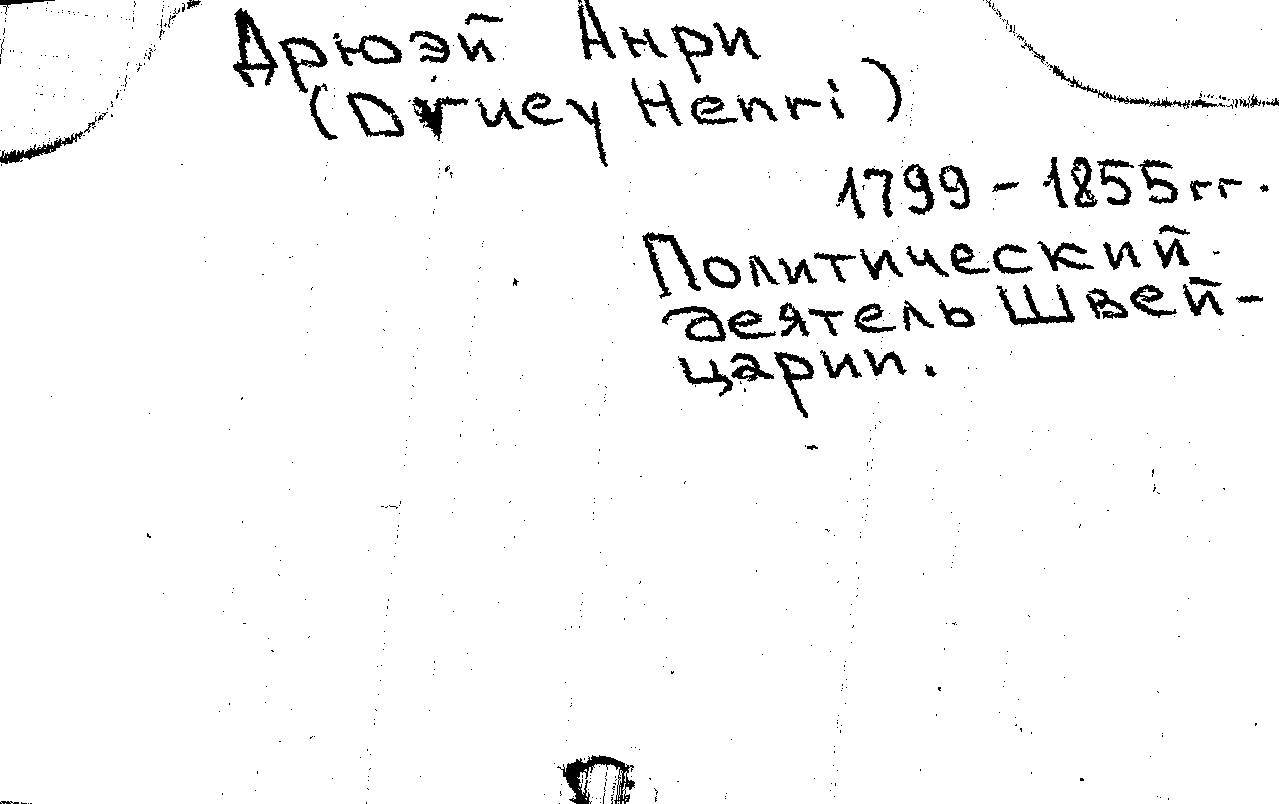 Дрюэй Анри
(Druey Henri)
1799 - 1855 гг.
Политический
деятель Швей-
царии.